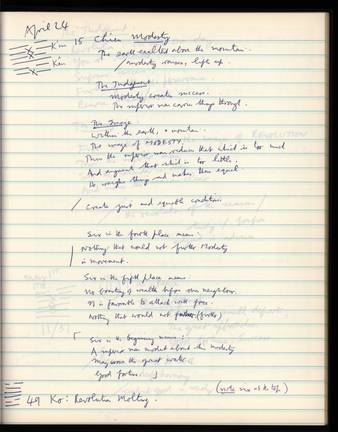 April 24
Kun 15 Chien Modesty
Kên The earth exalted above the mountain.
/ modesty
The Judgement
Modesty creates success.
The superior man carries things through.
The Image
Within the earth, a mountain.
The image of MODESTY.
Thus the superior man reduces that which is too much
And augments that which is too little.
He weighs things and makes them equal.
/ Create just and equable conditions
Six in the fourth place means:
Nothing that would not further Modesty
in movement.
Six in the fifth place means
No boasting of wealth before one's neighbor.
It is favorable to attack with force.
Nothing that would not further (further)
Six in the beginning means:
A superior man modest about his modesty
May cross the great water.
Good fortune
(note
49 Ko: Revolution Molting.